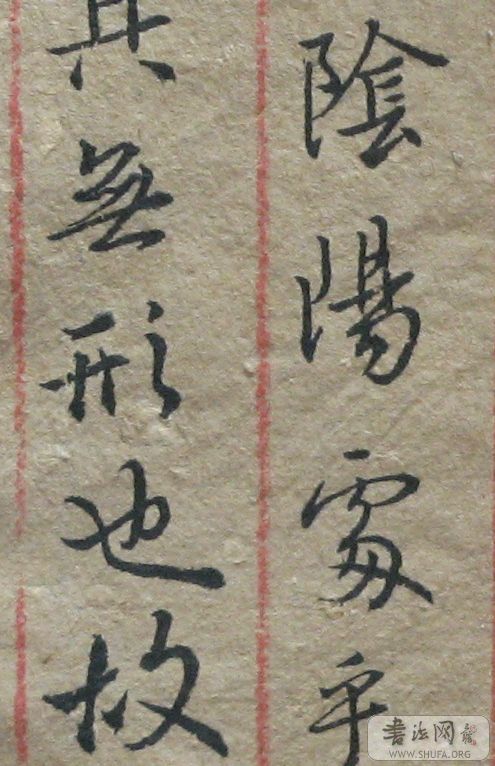 陰陽處乎
其無形也故
書法网
WWW.SHUFA.ORG